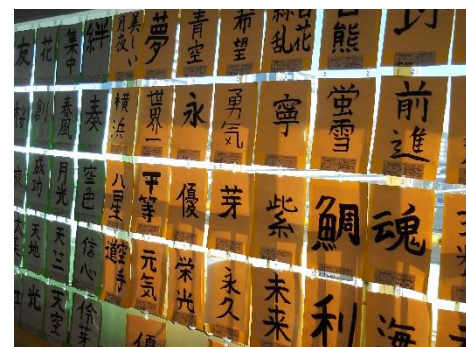 友
花
集中
絆
美しい
月夜
夢
青空
希望
白熊
桜
創
春風
奏
横浜
世界
永
勇気
寧
蛍雪
前進
成功
月光
空色
八星
平等
優
芽
紫
鯛
魂
天地
天竺
信心
空手
道
元気
栄光
永久
未来
利
海
光
天空
伶芽
優